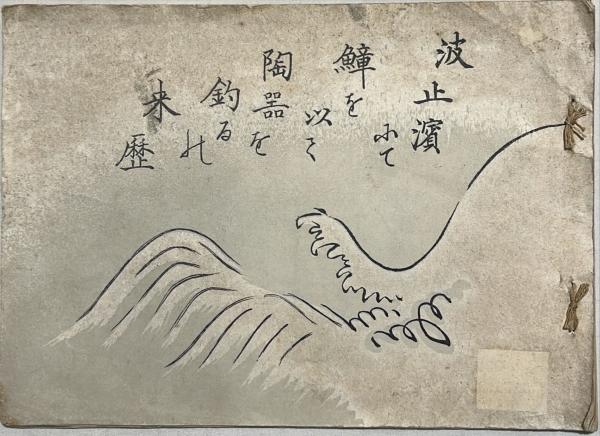 波止濱
にて
鱆を
以て
陶器を
釣るの
来歴